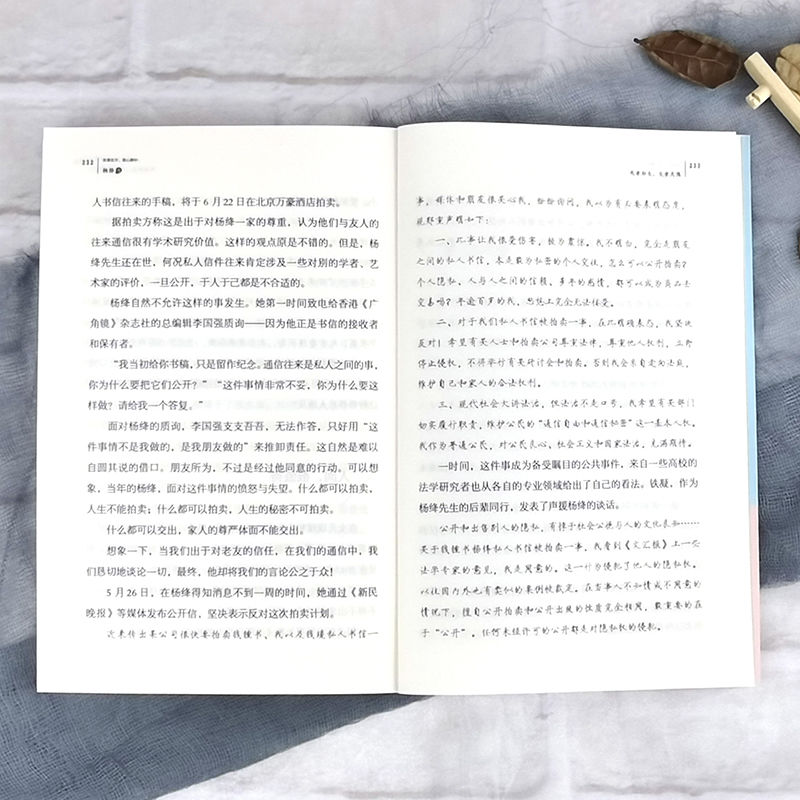 232
杨绛
人书信往来的手稿，将于 6 月 22 日在北京万豪酒店拍卖。
据拍卖方称这是出于对杨绛一家的尊重，认为他们与友人的
往来通信很有学术研究价值。这样的观点原是不错的。但是，杨
绛先生还在世，何况私人信件往来肯定涉及一些对别的学者、艺术
家的评价，一旦公开，于人于己都是不合适的。
杨绛自然不允许这样的事发生。她第一时间致电给香港《广
角镜》杂志社的总编辑李国强质询——因为他正是书信的接收者
和保有者。
“我当初给你书稿，只是留作纪念。通信往来是私人之间的事，
你为什么要把它们公开？”“这件事情非常不妥，你为什么要这
样做？请给我一个答复。”
面对杨绛的质询，李国强支支吾吾，无法作答，只好用“这
件事情不是我做的，是我朋友做的”来推卸责任。这自然是难以
自圆其说的借口。朋友所为，不过是经过他同意的行动。可以想
象，当年的杨绛，面对这件事情的愤怒与失望。什么都可以拍卖，
人生不能拍卖；什么都可以拍卖，人生的秘密不可拍卖。
什么都可以交出，家人的尊严体面不能交出。
想象一下，当我们出于对老友的信任，在我们的通信中，我
们恳切地谈论一切，最终，他却将我们的言论公之于众！
5 月 26 日，在杨绛得知消息不到一周的时间，她通过《新民
晚报》等媒体发布公开信，坚决表示反对这次拍卖计划。
近来传出某公司很快要拍卖钱锺书、我以及钱瑗私人书信一
233
事，媒体和朋友很关心我，纷纷询问，我以为有必要表明态度，
现郑重声明如下：
一、此事让我很受伤害，极为震惊，我不明白，完全是朋友
之间的私人书信，本是最为私密的个人交往，怎么可以公开拍卖？
个人隐私、人与人之间的信赖、多年的感情，都可以成为商品去
交易吗？年逾百岁的我，思想上完全无法接受。
二、对于我们私人书信被拍卖一事，在此明确表态，我坚决
反对！希望有关人士和拍卖公司尊重法律，尊重他人权利，立即
停止侵权，不得举行有关研讨会和拍卖。否则我会亲自走向法庭，
维护自己和家人的合法权利。
三、现代社会大讲法治，但法治不是口号，我希望有关部门
切实履行职责，维护公民的“通信自由和通信秘密”这一基本人权。
我作为普通公民，对公民良心、社会正义和国家法治，充满期待。
一时间，这件事成为备受瞩目的公共事件，来自一些高校的
法学研究者也从各自的专业领域给出了自己的看法。铁凝，作为
杨绛先生的后辈同行，发表了声援杨绛的谈话。
公开和出售别人的隐私，有悖于社会公德与人的文化良知……
关于钱锺书杨绛私人书信被拍卖一事，我看到《文汇报》上一些
法学专家的意见，我是同意的。这一行为侵犯了他人的隐私权。
以往国内外也有类似的案例被裁定。在当事人不知情或不同意的
情况下，擅自公开拍卖和公开出版的性质完全相同，最重要的在
于“公开”。任何未经许可的公开都是对隐私权的侵犯。